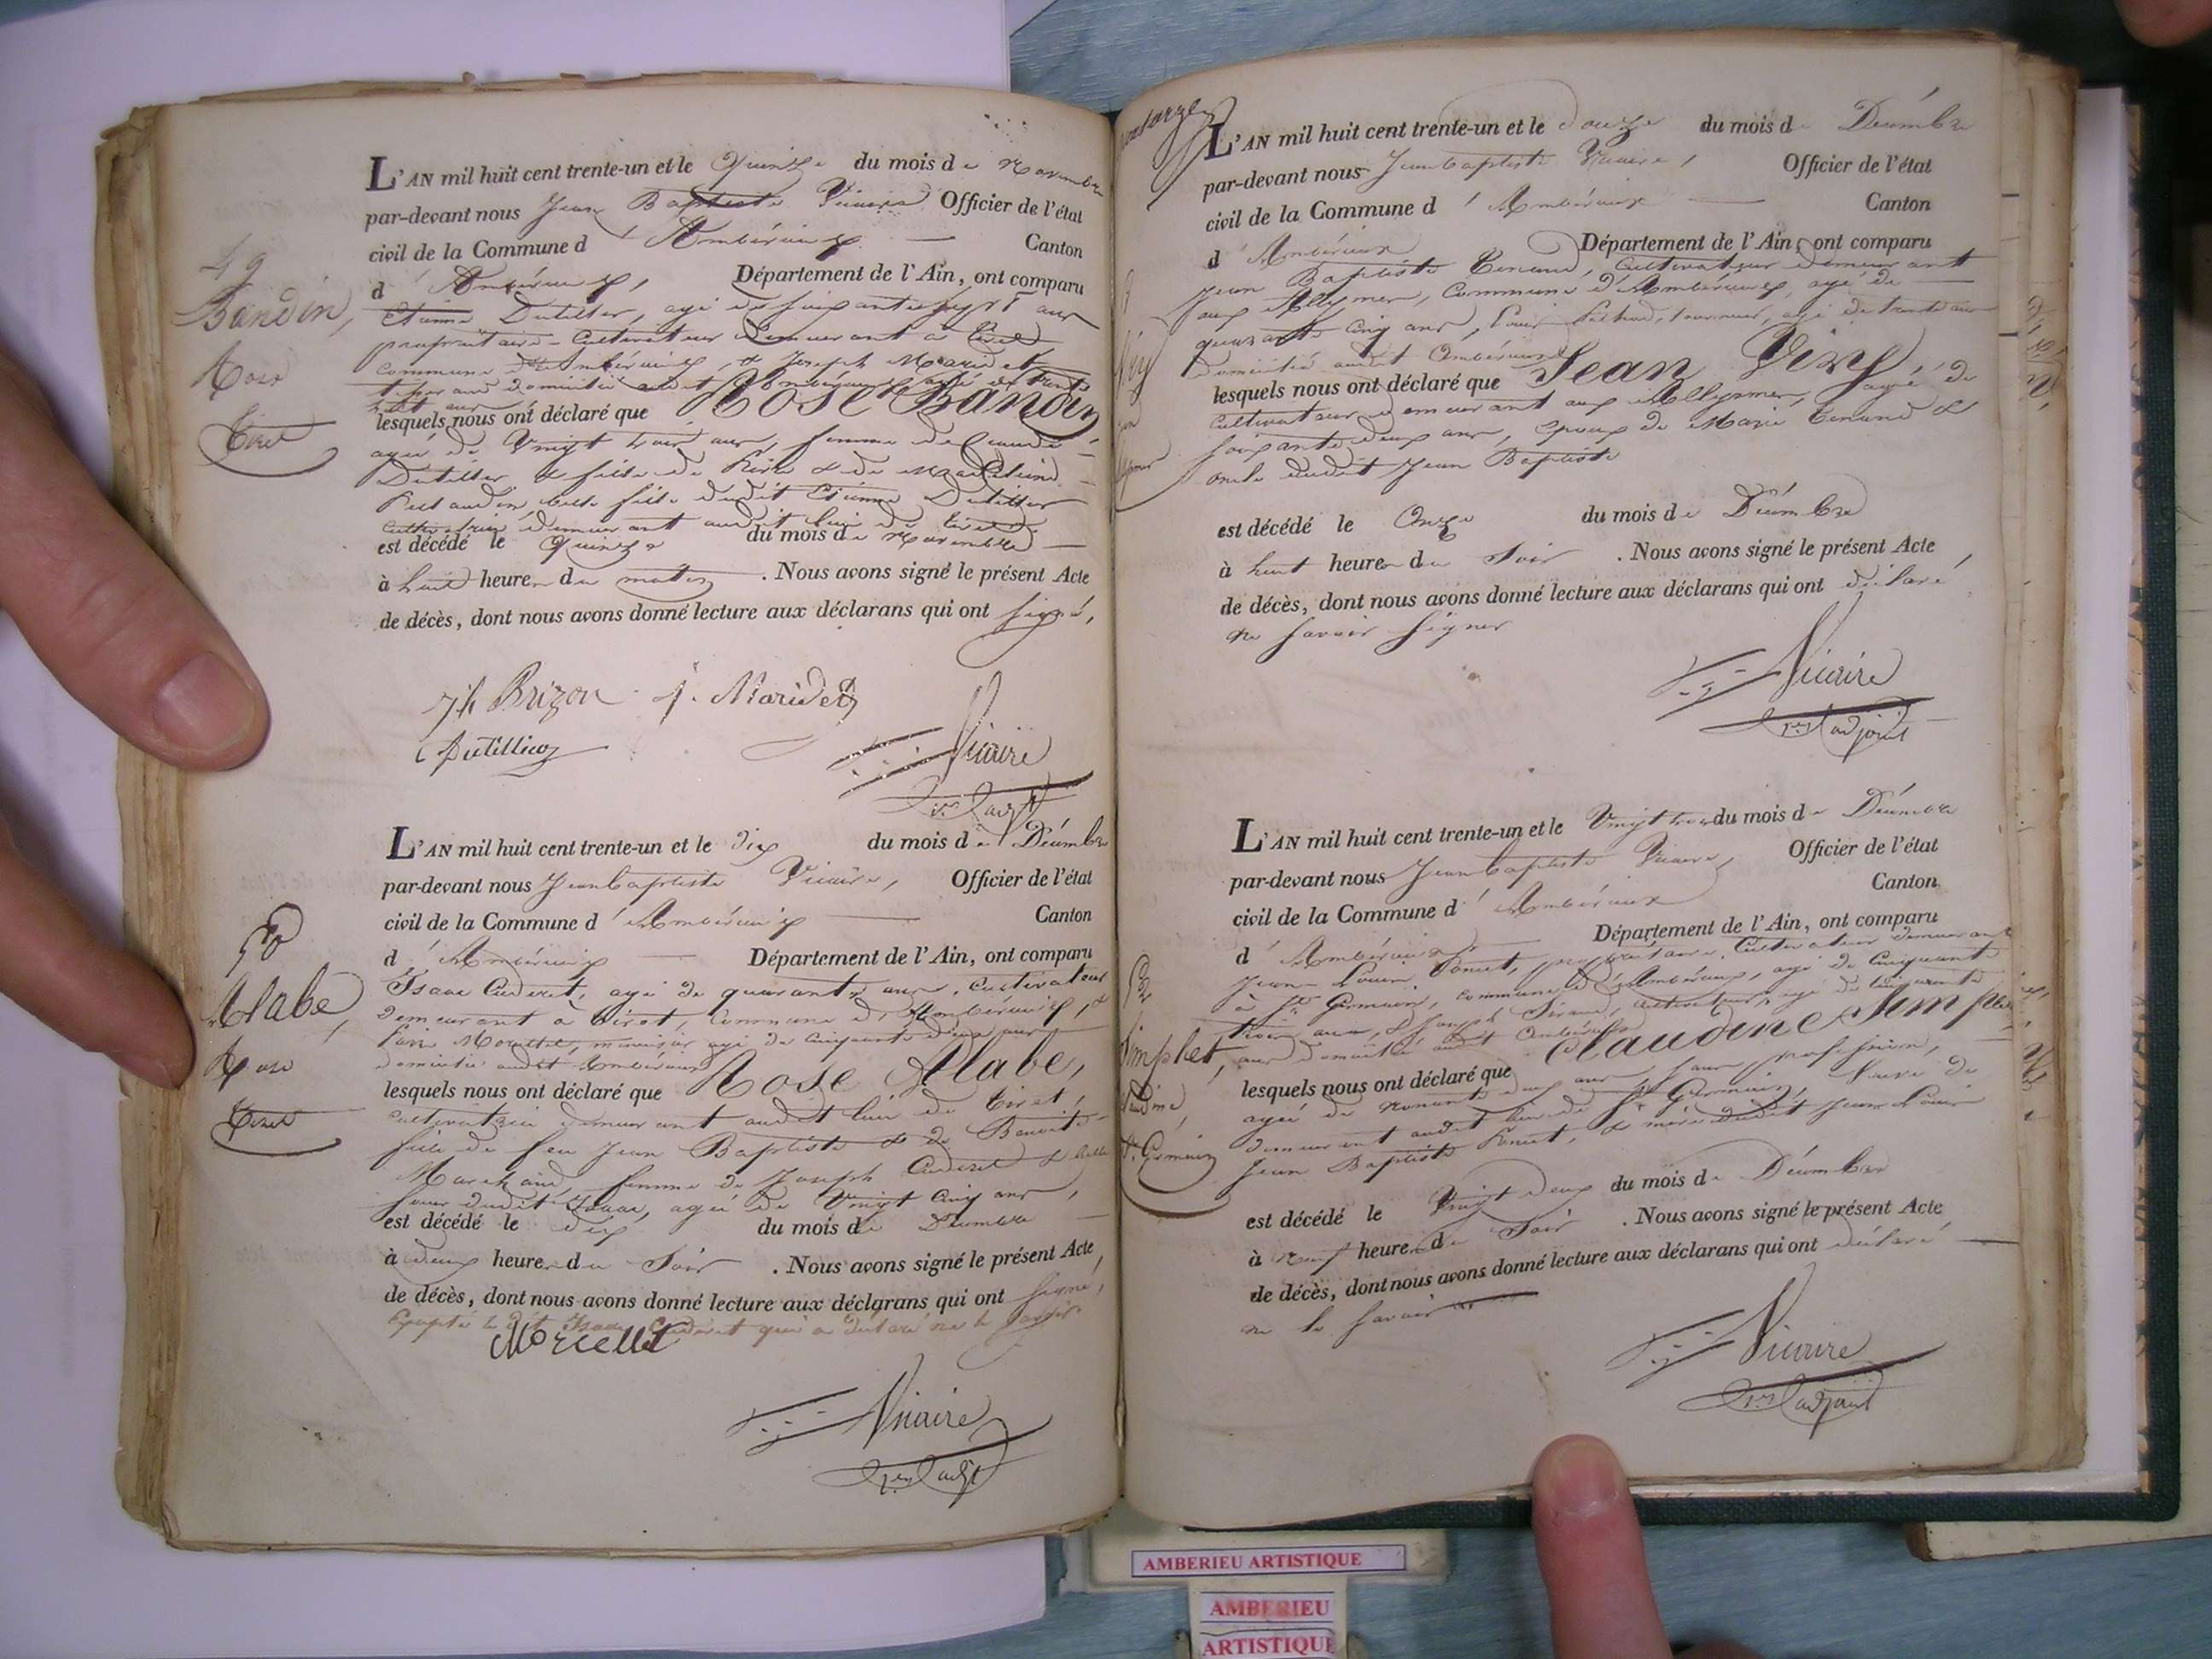 49
Bandin,
Rose
Tiret
L'AN mil huit cent trente-un et le Quinze du mois de Novembre
par-devant nous Jean Baptiste Vicaire Officier de l'état
civil de la Commune d'Ambérieux — Canton
d'Ambérieux, Département de l'Ain, ont comparu
Etienne Dutillier, agé de soixante sept ans
propriétaire-Cultivateur demeurant à Tiret
Commune d'Ambérieux, & Joseph Maridet
domicilié audit Ambérieux agé de trente
huit ans
lesquels nous ont déclaré que Rose Bandin
agée de Vingt trois ans, femme de Claude
Dutillier & fille de & de
belle fille dudit Etienne Dutillier
Cultivatrice demeurant audit lieu de Tiret
est décédé le Quinze du mois de Novembre —
à huit heures du matin. Nous avons signé le présent Acte
de décès, dont nous avons donné lecture aux déclarans qui ont signé,
Jh Brizon J. Maridet
Dutillier
Vicaire
1er adjt
50
Alabe,
Rose
Tiret
L'AN mil huit cent trente-un et le dix du mois de Décembre
par-devant nous Jean Baptiste Vicaire, Officier de l'état
civil de la Commune d'Ambérieux — Canton
d'Ambérieux — Département de l'Ain, ont comparu
Isaac Cuderet, agé de quarante ans, Cultivateur
demeurant à Tiret, Commune d'Ambérieux, &
menuisier agé de Cinquante deux ans
domicilié audit Ambérieux
lesquels nous ont déclaré que Rose Alabe,
cultivatrice demeurant audit lieu de Tiret,
fille de feu Jean Baptiste & de Benoite
Marchand, femme de Joseph Cuderet & belle
soeur dudit Isaac, agée de Vingt Cinq ans,
est décédé le dix du mois de Décembre
à deux heures du Soir. Nous avons signé le présent Acte
de décès, dont nous avons donné lecture aux déclarans qui ont signé,
Excepté le dit Isaac Cuderet qui a déclaré ne le savoir
Morcellet
Vicaire
1er adjt
L'AN mil huit cent trente-un et le douze du mois de Décembre
par-devant nous Jean baptiste Vicaire, Officier de l'état
civil de la Commune d'Ambérieux — Canton
d'Ambérieux Département de l'Ain, ont comparu
Jean Baptiste Tenand, Cultivateur demeurant
aux Allymes, Commune d'Ambérieux, agé de
quarante Cinq ans, Louis tourneur, agé de trente ans
domicilié audit Ambérieux
lesquels nous ont déclaré que Jean Viry agé de
Cultivateur demeurant aux Allymes,
soixante deux ans, époux de Marie Tenand &
oncle dudit Jean Baptiste
est décédé le Onze du mois de Décembre
à huit heures du Soir. Nous avons signé le présent Acte,
de décès, dont nous avons donné lecture aux déclarans qui ont déclaré
ne savoir signer
Vicaire
1er adjoint
52
Simplet,
Claudine
St. Germain
L'AN mil huit cent trente-un et le Vingt trois du mois de Décembre
par-devant nous Jean baptiste Vicaire, Officier de l'état
civil de la Commune d'Ambérieux Canton
d'Ambérieux Département de l'Ain, ont comparu
Jean-Louis Ponet, propriétaire, Cultivateur demeurant
à St. Germain, Commune d'Ambérieux, agé de Cinquante
trois ans, & Joseph Sirand, cultivateur, agé de Cinquante
ans domicilié audit Ambérieux
lesquels nous ont déclaré que Claudine Simplet
agée de nonante deux ans, sans profession,
demeurant audit lieu de St. Germain, Veuve de
Jean Baptiste Ponet, & mère dudit Jean Louis
est décédé le Vingt deux du mois de Décembre
à neuf heures du Soir. Nous avons signé le présent Acte
de décès, dont nous avons donné lecture aux déclarans qui ont déclaré —
ne le savoir
Vicaire
1er adjoint
AMBERIEU ARTISTIQUE
AMBERIEU
ARTISTIQUE